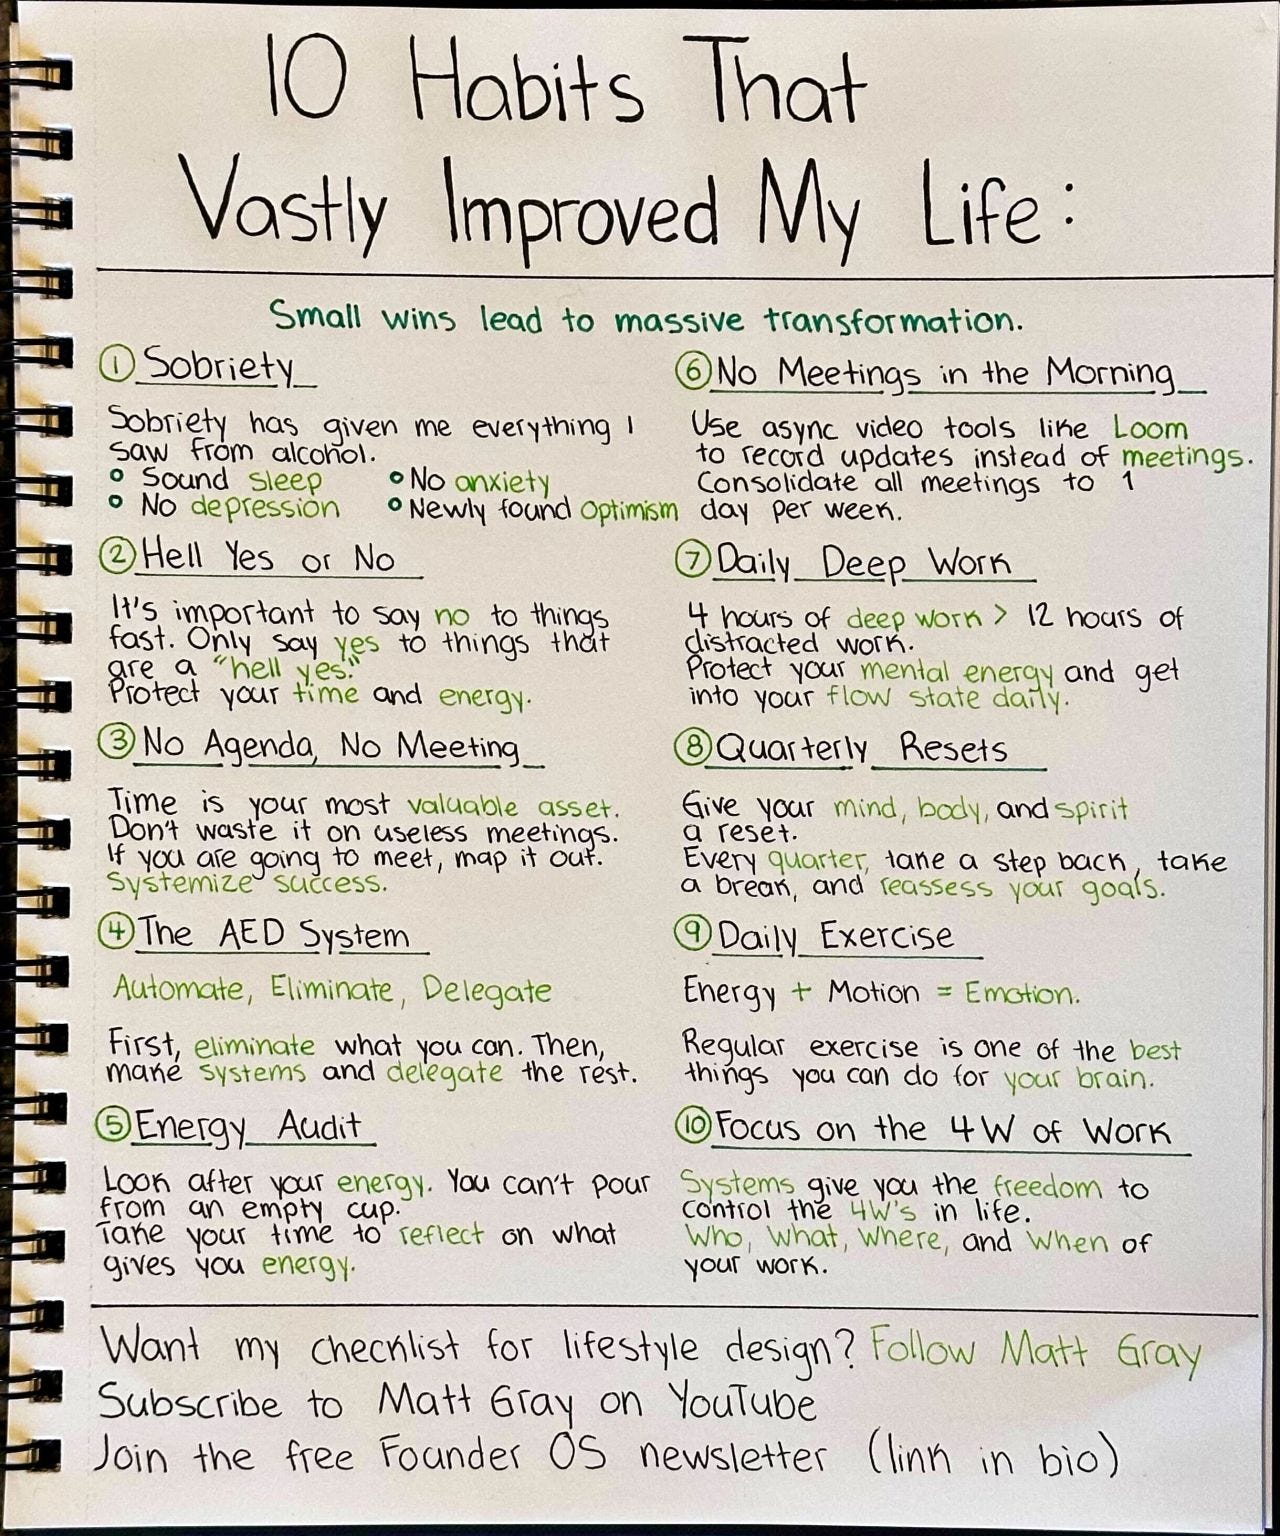 10 Habits That
Vastly Improved My Life:
Small wins lead to massive transformation.
① Sobriety
Sobriety has given me everything I
saw from alcohol.
° Sound sleep
° No anxiety
° No depression
° Newly found Optimism
② Hell Yes or No
It's important to say no to things
fast. Only say yes to things that
are a "hell yes."
Protect your time and energy.
③ No Agenda, No Meeting
Time is your most valuable asset.
Don't waste it on useless meetings.
If you are going to meet, map it out.
Systemize success.
④ The AED System
Automate, Eliminate, Delegate
First, eliminate what you can. Then,
make systems and delegate the rest.
⑤ Energy Audit
Look after your energy. You can't pour
from an empty cup.
Take your time to reflect on what
gives you energy.
⑥ No Meetings in the Morning
Use async video tools like Loom
to record updates instead of meetings.
Consolidate all meetings to 1
day per week.
⑦ Daily Deep Work
4 hours of deep work > 12 hours of
distracted work.
Protect your mental energy and get
into your flow state daily.
⑧ Quarterly Resets
Give your mind, body, and spirit
a reset.
Every quarter, take a step back, take
a break, and reassess your goals.
⑨ Daily Exercise
Energy + Motion = Emotion.
Regular exercise is one of the best
things you can do for your brain.
⑩ Focus on the 4W of Work
Systems give you the freedom to
control the 4W's in life.
Who, What, Where, and When of
your work.
Want my checklist for lifestyle design? Follow Matt Gray
Subscribe to Matt Gray on YouTube
Join the free Founder OS newsletter (link in bio)